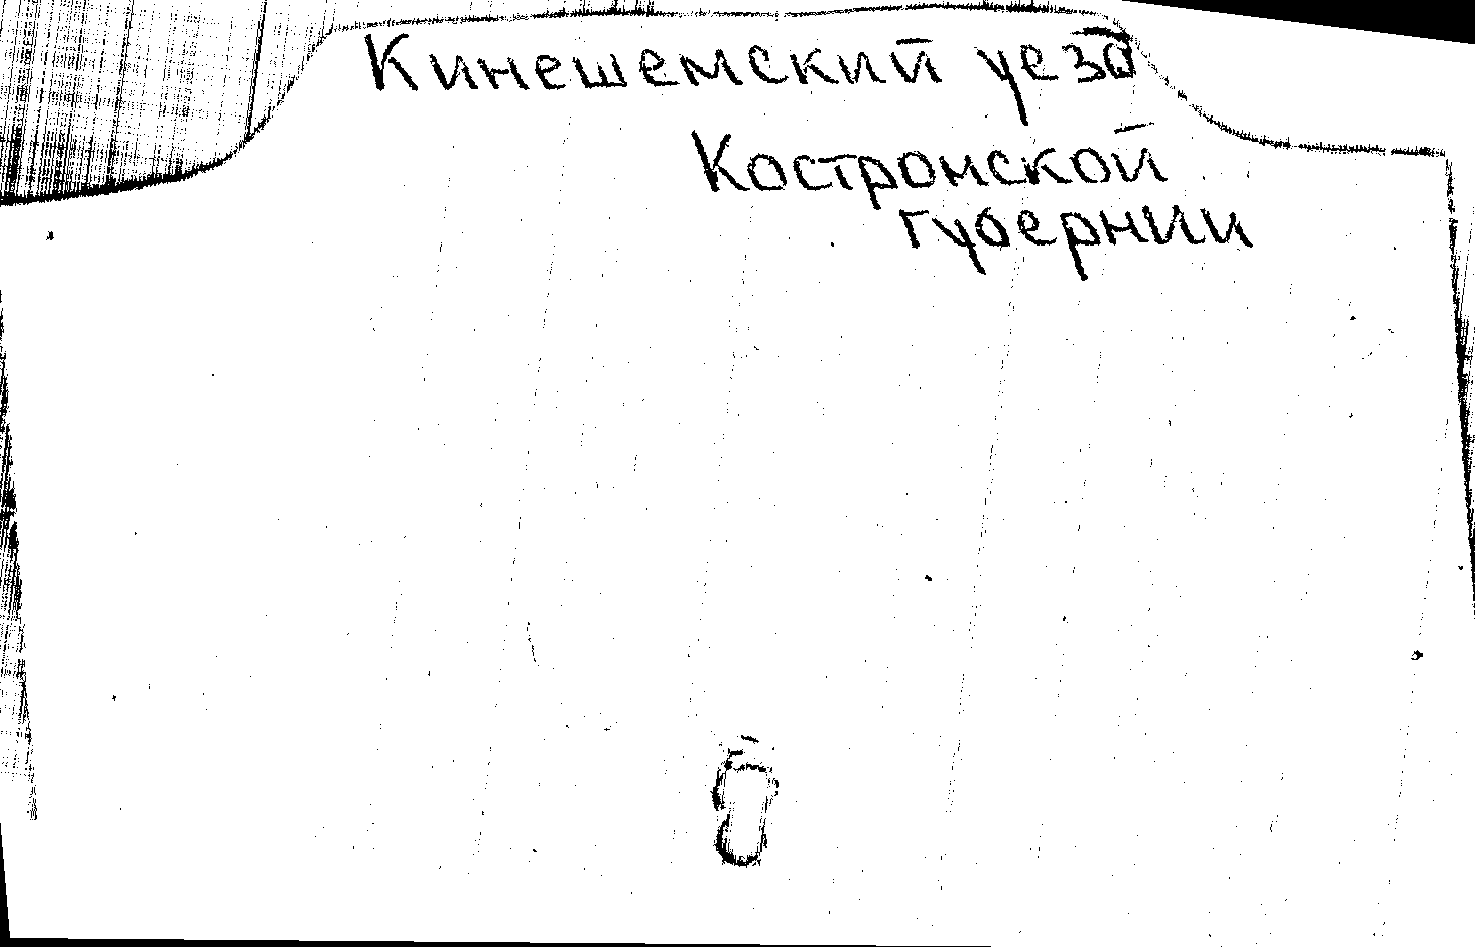 Кинешемский уезд
Костромской
губернии